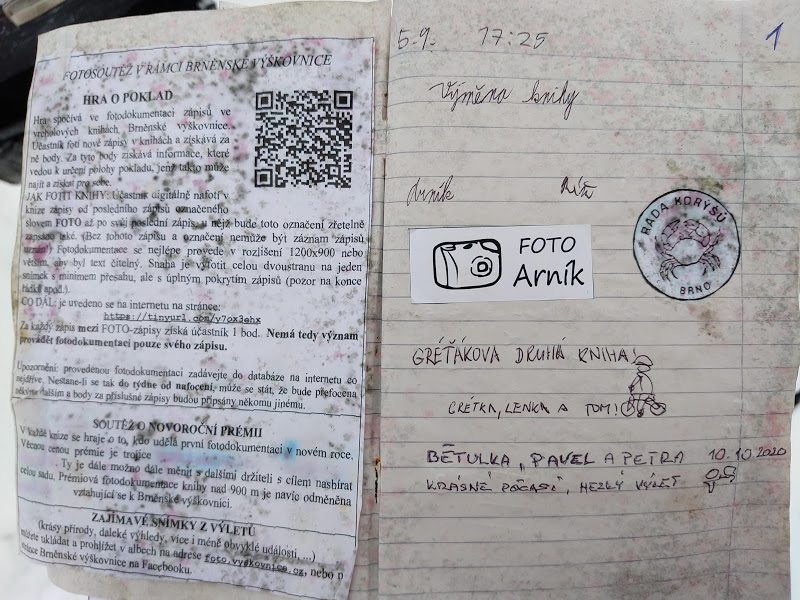 FOTOSOUTĚŽ V RÁMCI BRNĚNSKÉ VÝŠKOVNICE
HRA O POKLAD
Hra spočívá ve fotodokumentaci zápisů ve
vrcholových knihách Brněnské výškovnice.
Účastník fotí nové zápisy v knihách a získává za
ně body. Za tyto body získává informace, které
vedou k určení polohy pokladu, jenž takto může
najít a získat pro sebe.
JAK FOTIT KNIHU: Účastník digitálně nafotí v
knize zápisy od posledního zápisu označeného
slovem FOTO až po svůj poslední zápis, u nějž bude toto označení zřetelně
zapsáno také. (Bez tohoto zápisu a označení nemůže být záznam zápisů
uznán) Fotodokumentace se nejlépe provede v rozlišení 1200x900 nebo
větším, aby byl text čitelný. Snaha je vyfotit celou dvoustranu na jeden
snímek s minimem přesahu, ale s úplným pokrytím zápisů (pozor na konce
řádků apod.).
CO DÁL: je uvedeno se na internetu na stránce:
https://tinyurl.com/y7ox3ehx
Za každý zápis mezi FOTO-zápisy získá účastník 1 bod. Nemá tedy význam
provádět fotodokumentaci pouze svého zápisu.
Upozornění: provedenou fotodokumentaci zadávejte do databáze na internetu co
nejdříve. Nestane-li se tak do týdne od nafocení, může se stát, že bude přefocena
někým dalším a body za příslušné zápisy budou připsány někomu jinému.
SOUTĚŽ O NOVOROČNÍ PRÉMII
V každé knize se hraje o to, kdo udělá první fotodokumentaci v novém roce.
Věcnou cenou prémie je trojice
. Ty je dále možno dále měnit s dalšími držiteli s cílem nasbírat
celou sadu. Prémiová fotodokumentace knihy nad 900 m je navíc odměněna
vztahující se k Brněnské výškovnici.
ZAJÍMAVÉ SNÍMKY Z VÝLETŮ
(krásy přírody, daleké výhledy, více i méně obvyklé události, ...)
můžete ukládat a prohlížet v albech na adrese foto.vyskovnice.cz, nebo n
Brněnské výškovnice na Facebooku.
5.9. 17:25
1
Výměna knihy
Arník
FOTO
Arník
RADA KORÝŠŮ
BRNO
GRÉŤÁKOVA DRUHÁ KNIHA!
GRÉTKA, LENKA A TOM!
BĚTULKA, PAVEL A PETRA 10.10.2020
KRÁSNÉ POČASÍ, HEZKÝ VÝLET